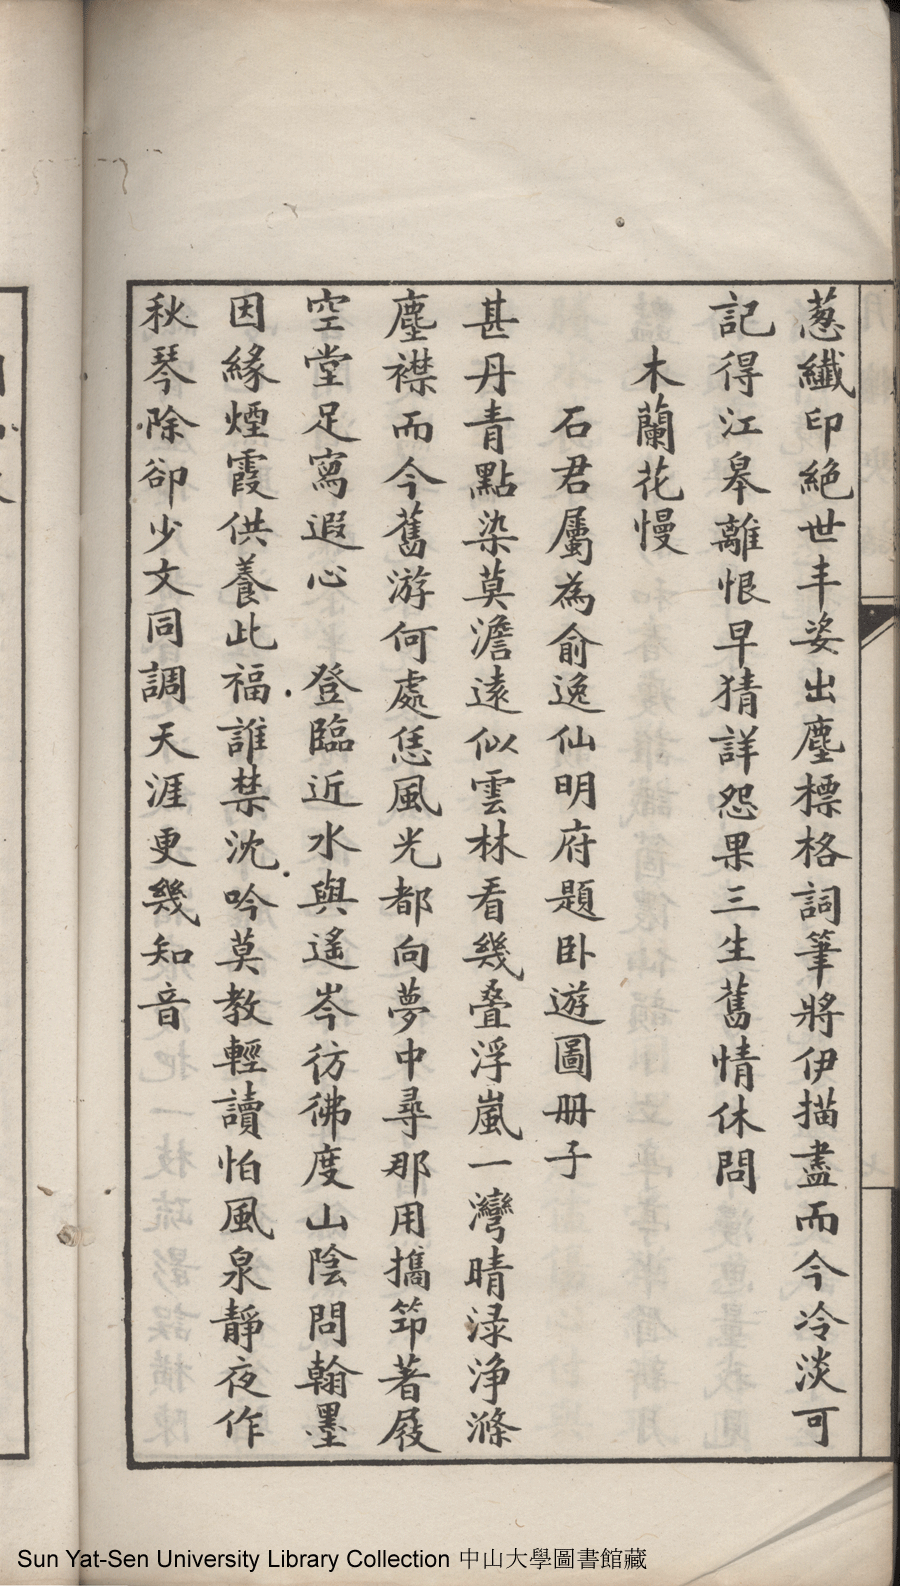 蔥纖印絕世丰姿出塵標格詞筆將伊描盡而今冷淡可
記得江皋離恨早猜詳怨果三生舊情休問
木蘭花慢
石君屬為俞逸仙明府題卧遊圖冊子
甚丹青點染莫澹遠似雲林看幾疊浮嵐一灣晴淥淨滌
塵襟而今舊游何處恁風光都向夢中尋那用攜筇著屐
空堂足寫遐心　登臨近水與遙岑彷彿度山陰問翰墨
因緣煙霞供養此福誰禁沈吟莫教輕讀怕風泉靜夜作
秋琴除卻少文同調天涯更幾知音
Sun Yat-Sen University Library Collection 中山大學圖書館藏